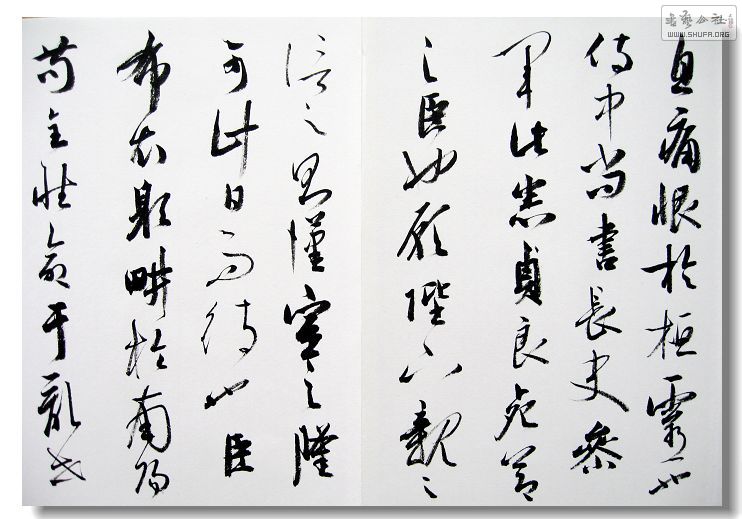 息痛恨於桓靈也
侍中尚書長史參
軍此悉貞良死節
之臣也願陛下親之
信之則漢室之隆
可計日而待也臣
布衣躬耕於南陽
苟全性命于亂世
书艺公社
WWW.SHUFA.ORG